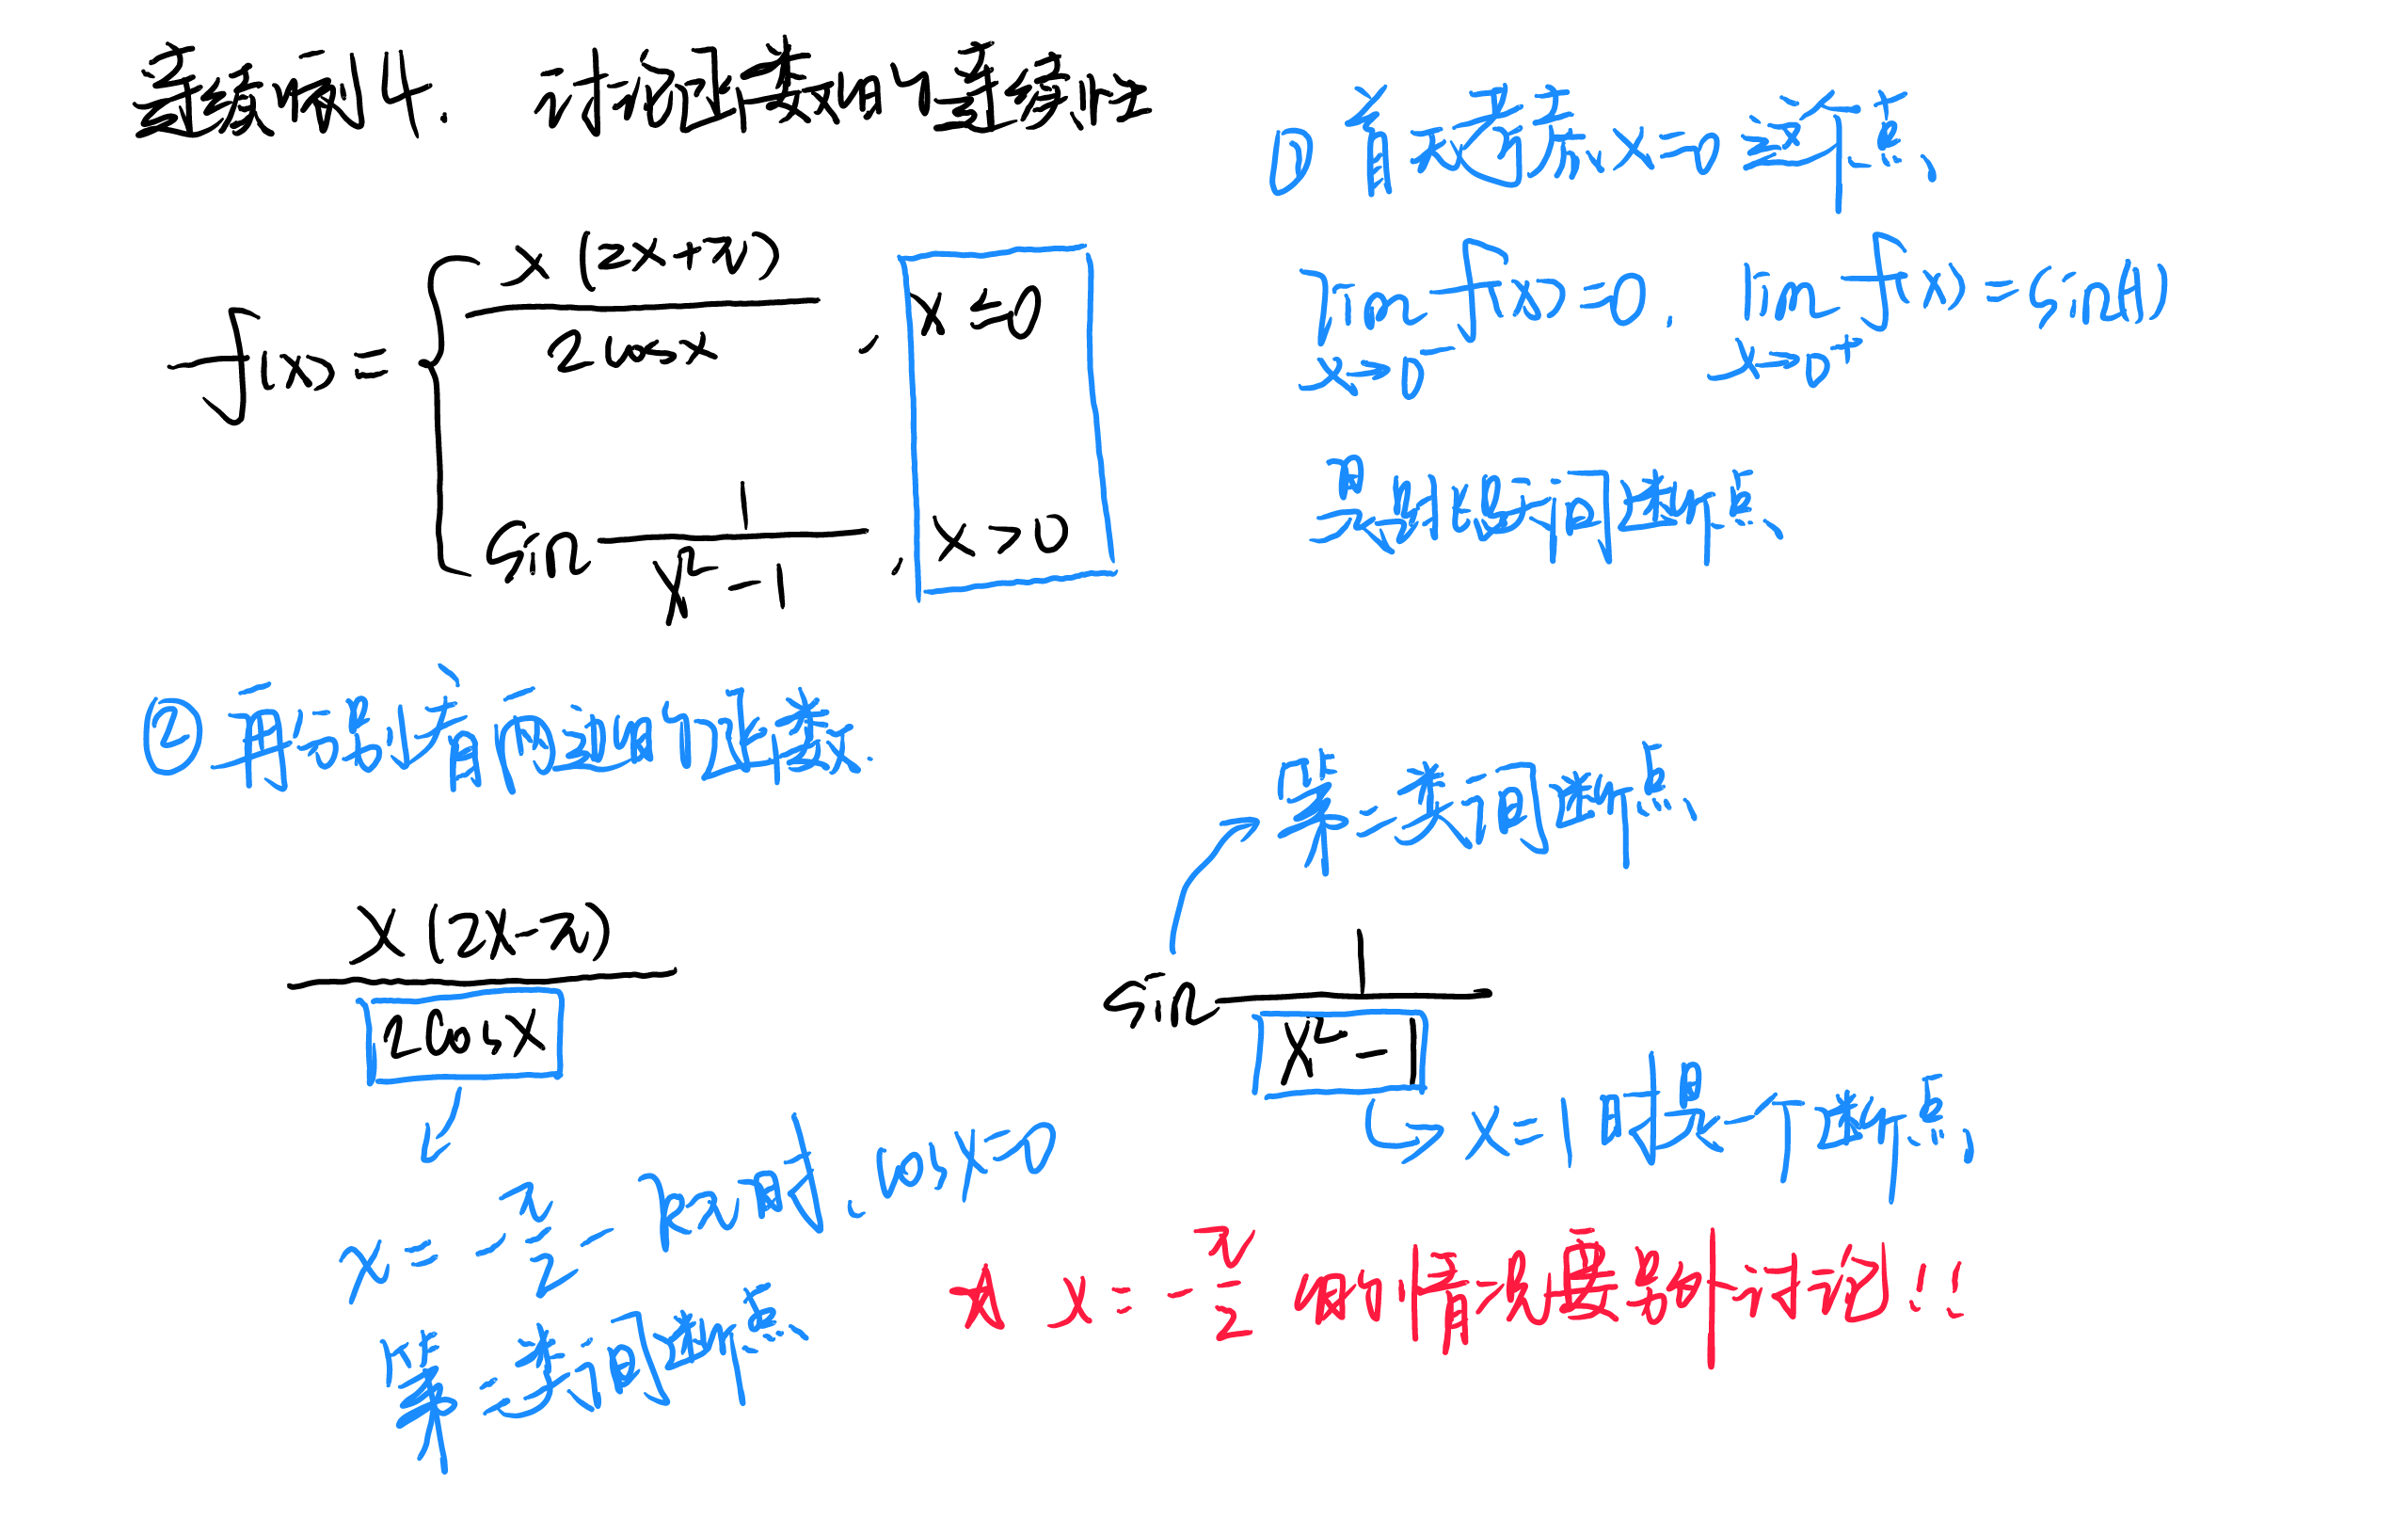 连续问14. 讨论函数的连续性
f(x)= { x(2x+π) / 2cosx , x≤0
sin 1/(x²-1) , x>0
① 首先考虑x=0这个点、
lim x→0⁻ f(x)=0. lim x→0⁺ f(x)=sin(1)
是跳跃间断点、
② 再分别看两边的函数.
x(2x-π) / 2cosx
x=-π/2-kπ时, cosx=0
第二类间断点.
第二类间断点、
sin 1/(x²-1)
x=1时是个断点,
★ x=-π/2 的情况要另外讨论!!